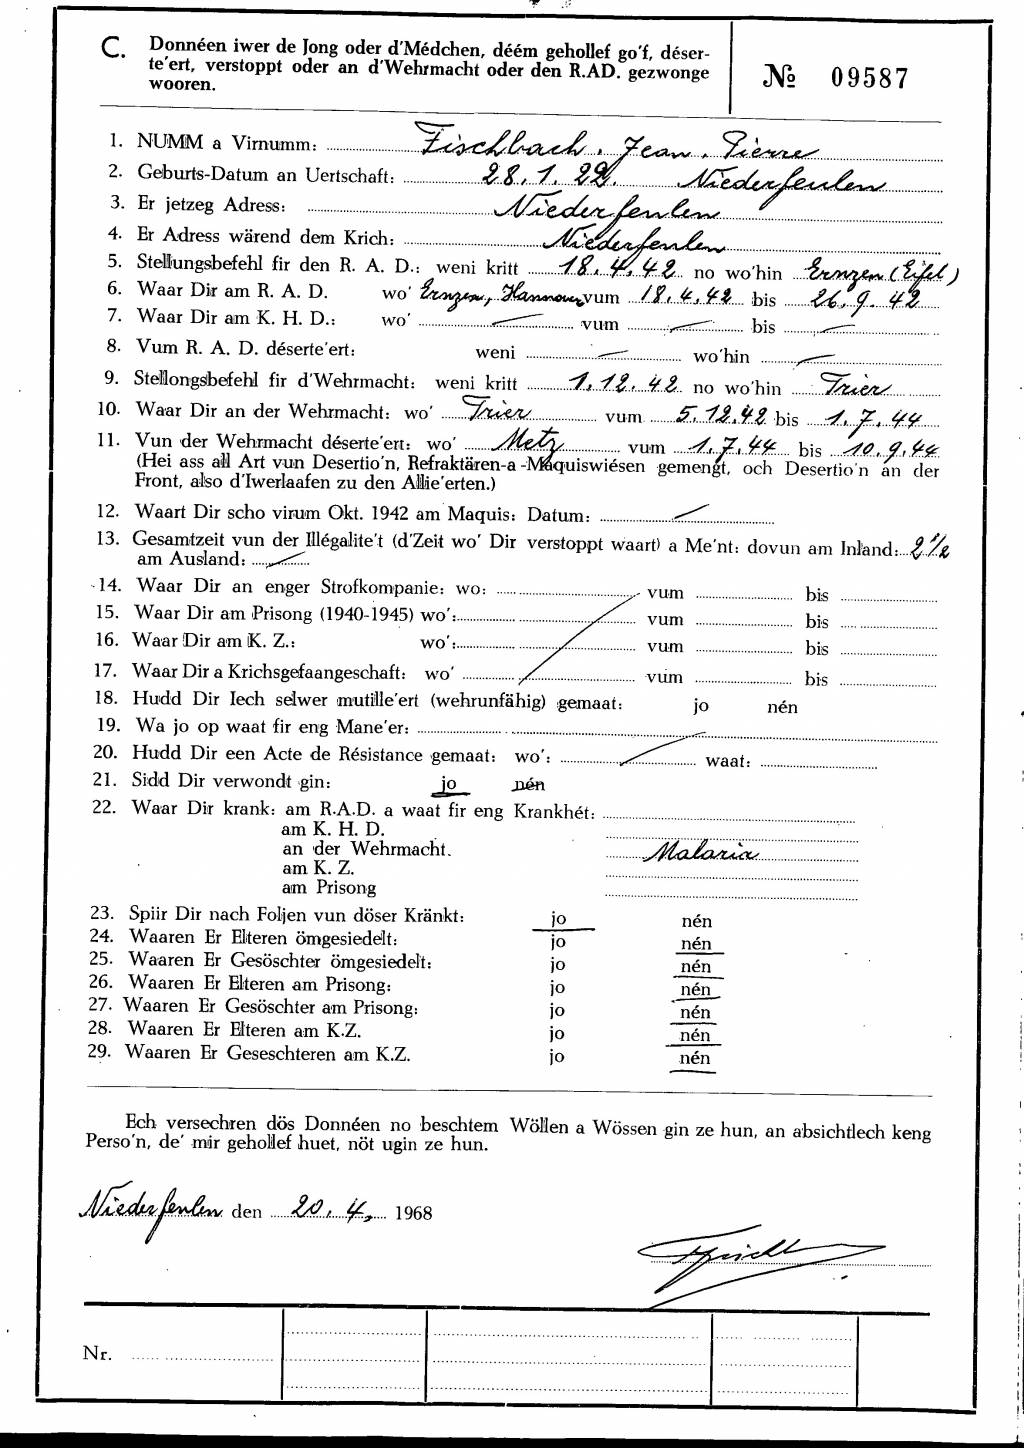 C. Donnéen iwer de Jong oder d'Médchen, déém gehollef go'f, déser-
te'ert, verstoppt oder an d'Wehrmacht oder den R.AD. gezwonge
wooren.
№ 09587
1. NUMM a Virnumm: Fischbach, Jean, Pierre
2. Geburts-Datum an Uertschaft: 28.1.22. Niederfeulen
3. Er jetzeg Adress: Niederfeulen
4. Er Adress wärend dem Krich: Niederfeulen
5. Stellungsbefehl fir den R. A. D.: weni kritt 18.4.42 no wo'hin Ernzen (Eifel)
6. Waar Dir am R. A. D. wo' Ernzen, Hannover vum 18.4.42 bis 26.9.42
7. Waar Dir am K. H. D.: wo' — vum — bis —
8. Vum R. A. D. déserte'ert: weni — wo'hin —
9. Stellongsbefehl fir d'Wehrmacht: weni kritt 1.12.42 no wo'hin Trier
10. Waar Dir an der Wehrmacht: wo' Trier vum 5.12.42 bis 1.7.44
11. Vun der Wehrmacht déserte'ert: wo' Metz vum 1.7.44 bis 10.9.44
(Hei ass all Art vun Desertio'n, Refraktären-a -Maquiswiésen gemengt, och Desertio'n an der
Front, also d'Iwerlaafen zu den Allie'erten.)
12. Waart Dir scho virum Okt. 1942 am Maquis: Datum: —
13. Gesamtzeit vun der Illégalite't (d'Zeit wo' Dir verstoppt waart) a Me'nt: dovun am Inland: 2 1/2
am Ausland: —
14. Waar Dir an enger Strofkompanie: wo: vum bis
15. Waar Dir am Prisong (1940-1945) wo': vum bis
16. Waar Dir am K. Z.: wo': vum bis
17. Waar Dir a Krichsgefaangeschaft: wo' vum bis
18. Hudd Dir Iech selwer mutille'ert (wehrunfähig) gemaat: jo nén
19. Wa jo op waat fir eng Mane'er:
20. Hudd Dir een Acte de Résistance gemaat: wo': waat:
21. Sidd Dir verwondt gin: jo nén
22. Waar Dir krank: am R.A.D. a waat fir eng Krankhét:
am K. H. D.
an der Wehrmacht. Malaria
am K. Z.
am Prisong
23. Spiir Dir nach Foljen vun döser Kränkt: jo nén
24. Waaren Er Elteren ömgesiedelt: jo nén
25. Waaren Er Gesöschter ömgesiedelt: jo nén
26. Waaren Er Elteren am Prisong: jo nén
27. Waaren Er Gesöschter am Prisong: jo nén
28. Waaren Er Elteren am K.Z. jo nén
29. Waaren Er Geseschteren am K.Z. jo nén
Ech versechren dös Donnéen no beschtem Wöllen a Wössen gin ze hun, an absichtlech keng
Perso'n, de' mir gehollef huet, nöt ugin ze hun.
Niederfeulen den 20.4. 1968
Nr.